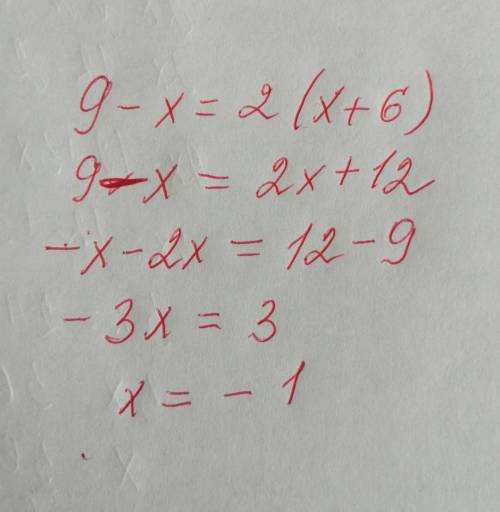 9 - x = 2 (x + 6)
9 - x = 2x + 12
- x - 2x = 12 - 9
- 3x = 3
x = - 1